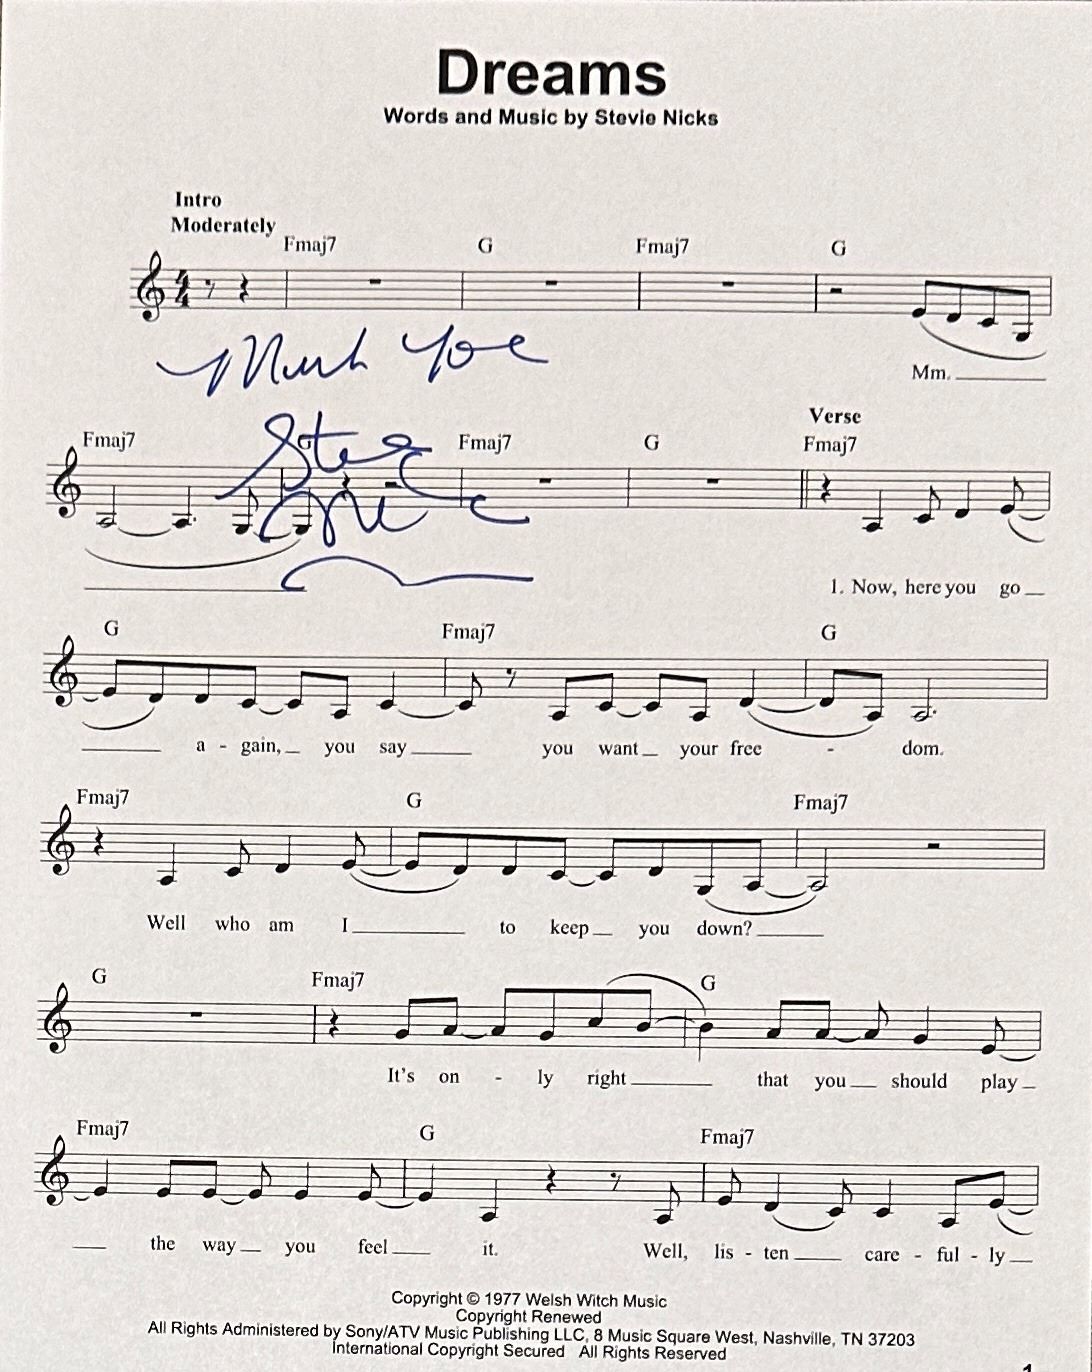 Dreams
Words and Music by Stevie Nicks
Intro
Moderately
Fmaj7 G Fmaj7 G
Much love
Mm.
Verse
Fmaj7 G Fmaj7 G Fmaj7
Stevie
Nicks
1. Now, here you go
G Fmaj7 G
a - gain, you say you want your free - dom.
Fmaj7 G Fmaj7
Well who am I to keep you down?
G Fmaj7 G
It's on - ly right that you should play
Fmaj7 G Fmaj7
the way you feel it. Well, lis - ten care - ful - ly
Copyright © 1977 Welsh Witch Music
Copyright Renewed
All Rights Administered by Sony/ATV Music Publishing LLC, 8 Music Square West, Nashville, TN 37203
International Copyright Secured All Rights Reserved
1